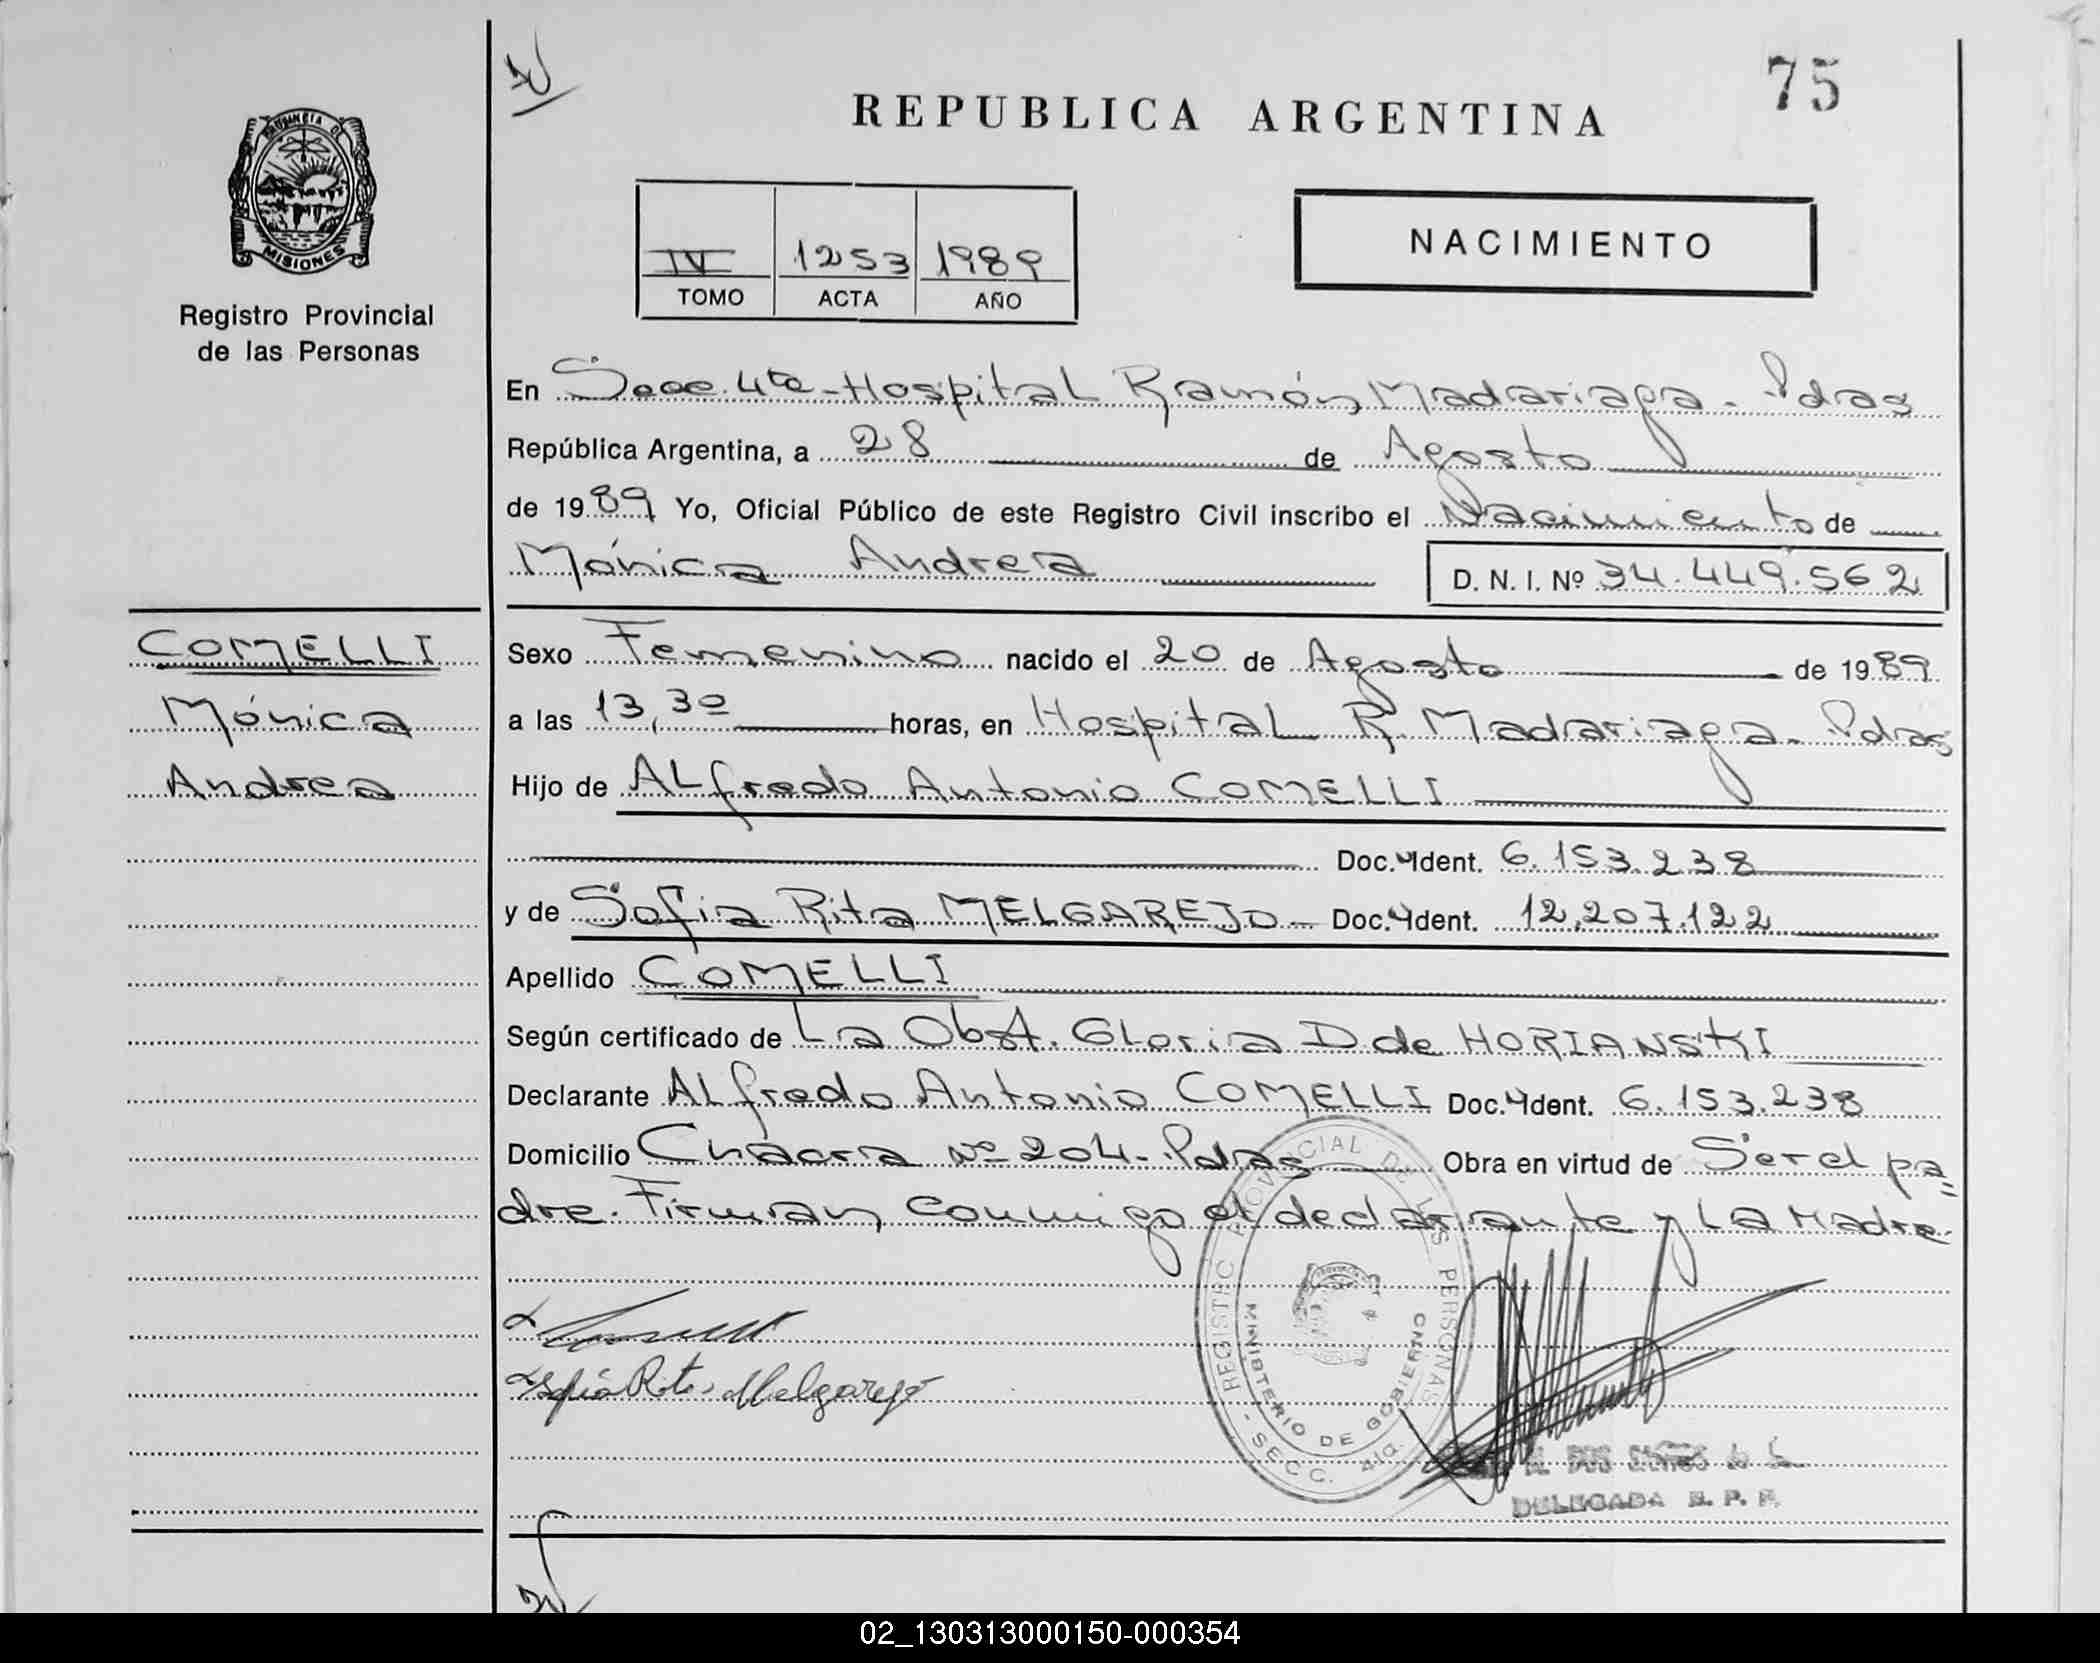 75
REPUBLICA ARGENTINA
PROVINCIA DE
MISIONES
Registro Provincial
de las Personas
IV 1253 1989
TOMO ACTA AÑO
NACIMIENTO
En Secc. 4ta - Hospital Ramón Madariaga - Pdas
República Argentina, a 28 de Agosto
de 1989 Yo, Oficial Público de este Registro Civil inscribo el Nacimiento de
Mónica Andrea D. N. I. Nº 34.449.562
COMELLI
Mónica
Andrea
Sexo Femenino nacido el 20 de Agosto de 1989
a las 13,30 horas, en Hospital R. Madariaga - Pdas
Hijo de Alfredo Antonio COMELLI
Doc. Ident. 6.153.238
y de Sofia Rita MELGAREJO - Doc. Ident. 12.207.122
Apellido COMELLI
Según certificado de La Obst. Gloria D. de HORIANSKI
Declarante Alfredo Antonio COMELLI Doc. Ident. 6.153.238
Domicilio Chacra Nº 204 - Pdas Obra en virtud de Ser el pa=
dre. Firman conmigo el declarante y La Madre
Sofía Rita Melgarejo
REGISTRO PROVINCIAL DE LAS PERSONAS
MINISTERIO DE GOBIERNO
- SECC. 4ta.
DELEGADA R. P. P.
02_130313000150-000354